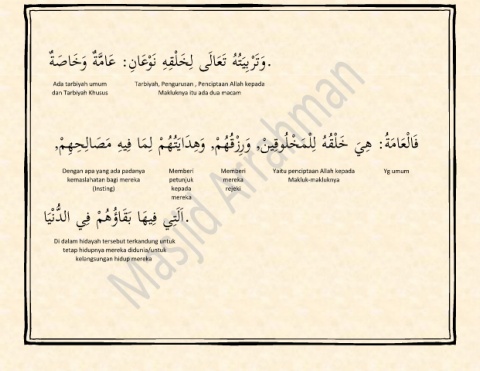 وَتَرْبِيَتُهُ تَعَالَى لِخَلْقِهِ نَوْعَانِ: عَامَّةٌ وَخَاصَةٌ.
Tarbiyah, Pengurusan , Penciptaan Allah kepada
Makluknya itu ada dua macam
Ada tarbiyah umum
dan Tarbiyah Khusus
فَالْعَامَةُ: هِيَ خَلْقُهُ لِلْمَخْلُوقِيْنَ, وَرِزْقُهُمْ, وَهِدَايَتُهُمْ لِمَا فِيهِ مَصَالِحِهِمْ,
Yg umum
Yaitu penciptaan Allah kepada
Makluk-makluknya
Memberi
mereka
rejeki
Memberi
petunjuk
kepada
mereka
Dengan apa yang ada padanya
kemaslahatan bagi mereka
(Insting)
اَلَتِي فِيهَا بَقَاؤُهُمْ فِي الدُّنْيَا.
Di dalam hidayah tersebut terkandung untuk
tetap hidupnya mereka didunia/untuk
kelangsungan hidup mereka
Masjid Arrahman